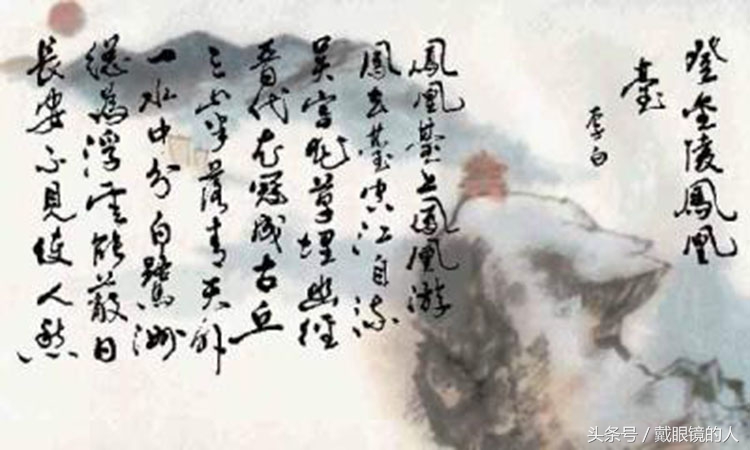 登金陵鳳凰
臺
李白
鳳凰臺上鳳凰游
鳳去臺空江自流
吳宮花草埋幽徑
晉代衣冠成古丘
三山半落青天外
一水中分白鷺洲
總為浮雲能蔽日
長安不見使人愁
头条号/戴眼镜的人